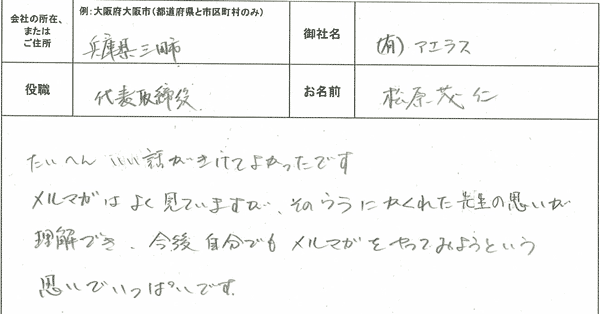 会社の所在、
または
ご住所
例:大阪府大阪市(都道府県と市区町村のみ)
兵庫県三田市
御社名
(有)アエラス
役職
代表取締役
お名前
松原茂仁
たいへん いい話がきけてよかったです
メルマガはよく見ていますが、そのうらにかくれた先生の思いが
理解でき、今後自分でもメルマガをやってみようという
思いでいっぱいです。